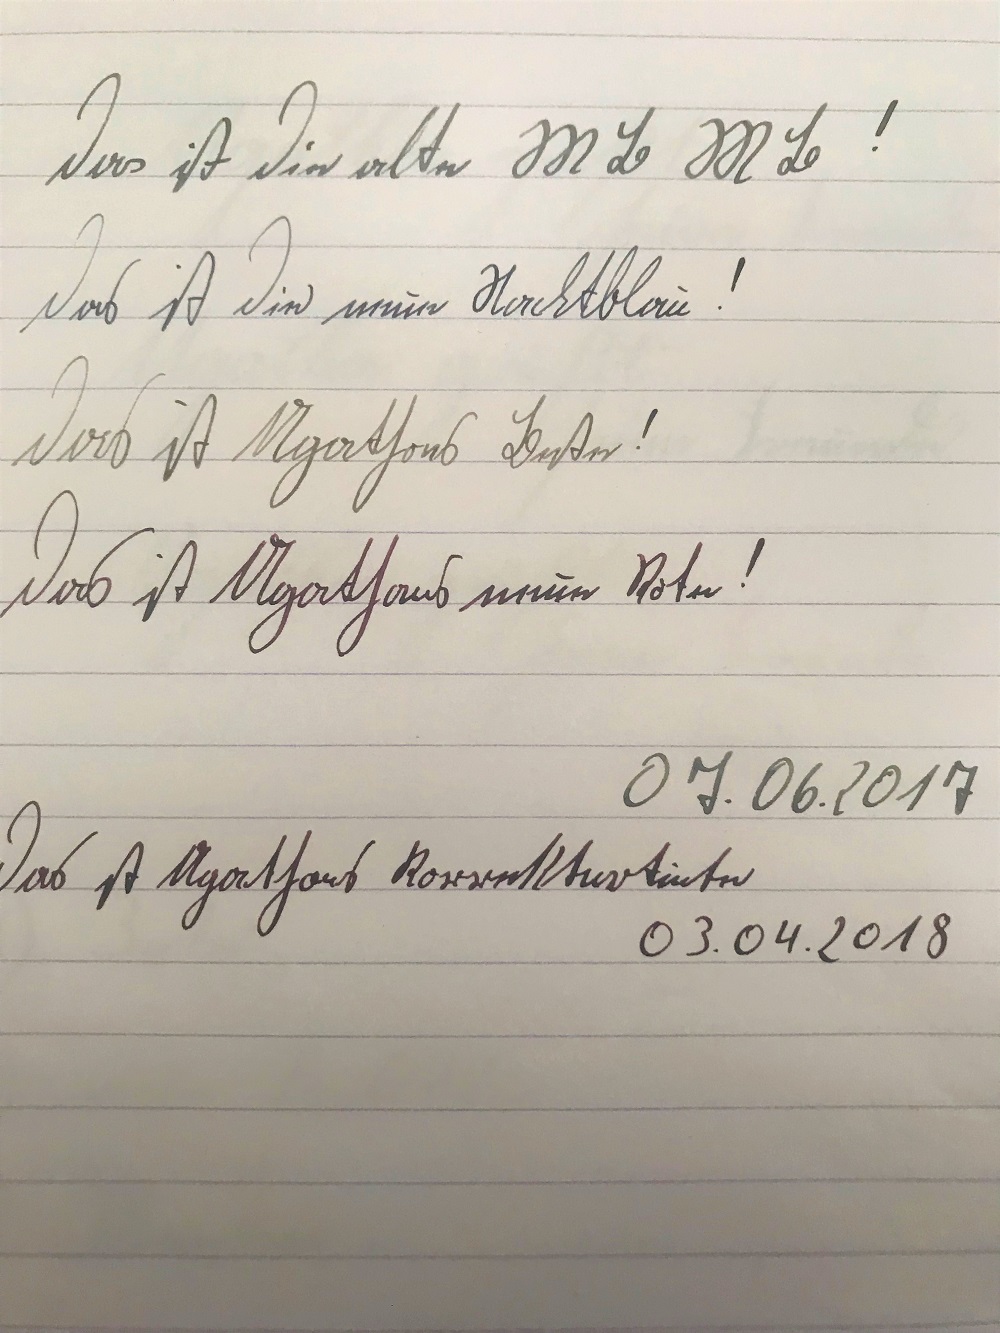 Das ist die alte MB MB!
Das ist die neue Nachtblau!
Das ist Agathons Beste!
Das ist Agathons neue Rote!
07.06.2017
Das ist Agathons Korrekturtinte
03.04.2018